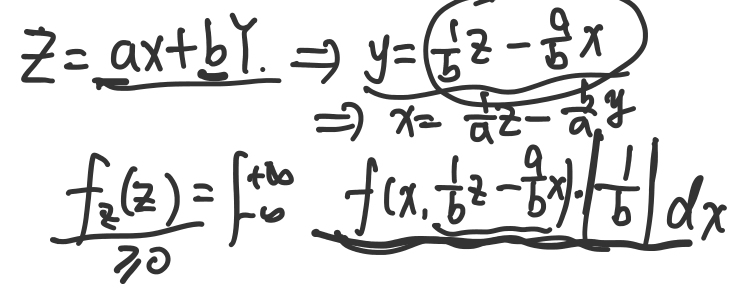 Z = ax+bY. ⇒ y = 1/b z − a/b x
⇒ x = 1/a z − b/a y
f_z(z) = ∫_{-∞}^{+∞} f(x, 1/b z − a/b x)·|1/b| dx
≥0